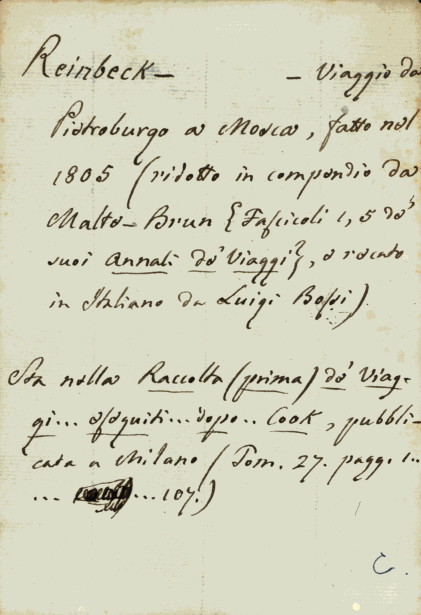 Reinbeck — — Viaggio da
Pietroburgo a Mosca, fatto nel
1805 (ridotto in compendio da
Malte-Brun {Fascicoli 1, 5 de'
suoi Annali de' Viaggi}, e recato
in Italiano da Luigi Bossi)
Sta nella Raccolta (prima) de' Viag-
gi... eseguiti... dopo.. Cook, pubbli-
cata a Milano (Tom. 27. pagg. 1..
... ... 107.)
C.